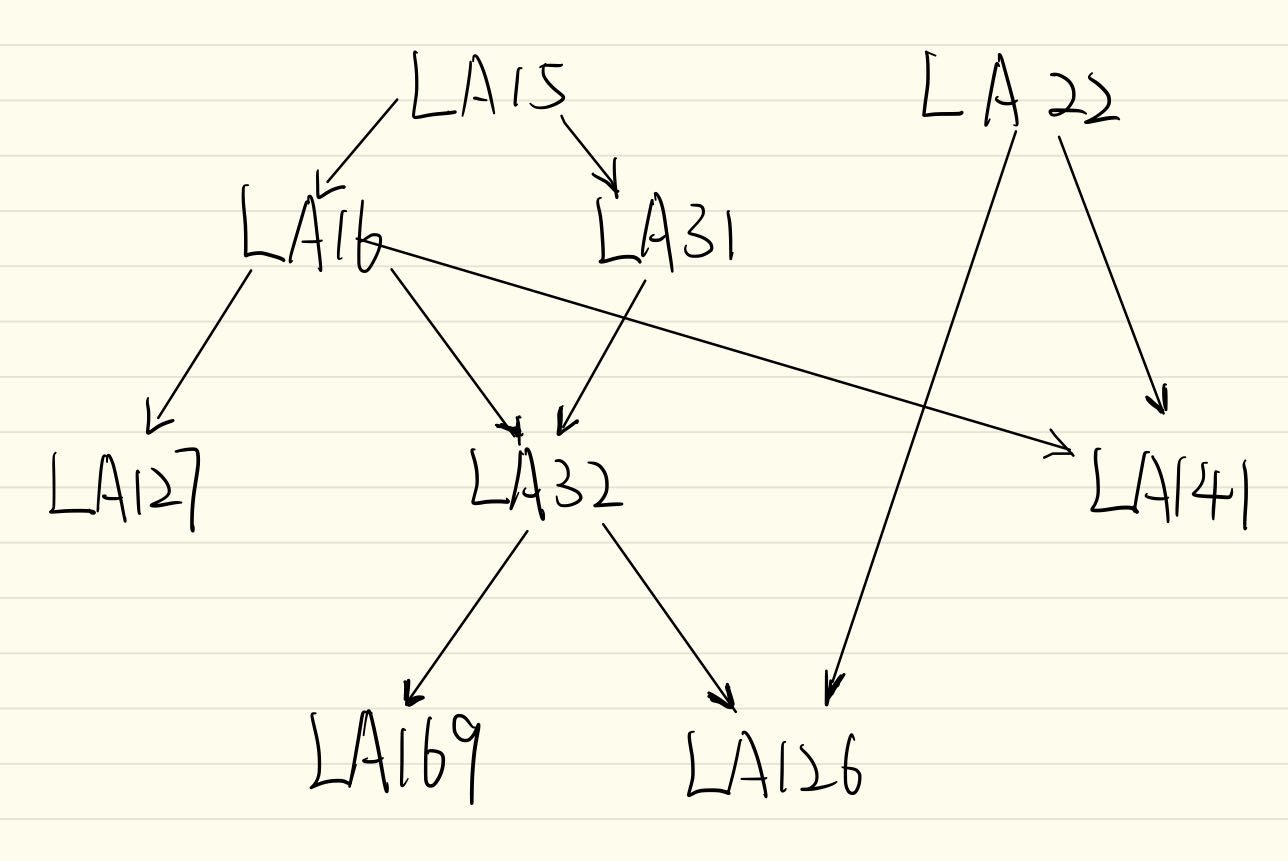 LA15 LA22
LA16 LA31
LA127 LA32 LA141
LA169 LA126